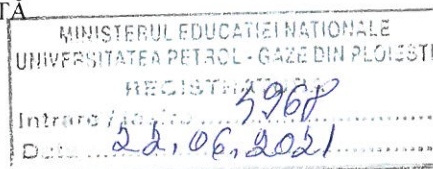 TĂ
MINISTERUL EDUCAȚIEI NAȚIONALE
UNIVERSITATEA PETROL - GAZE DIN PLOIEȘTI
REGISTRATURA
Intrare / 4968
Data 22.06.2021